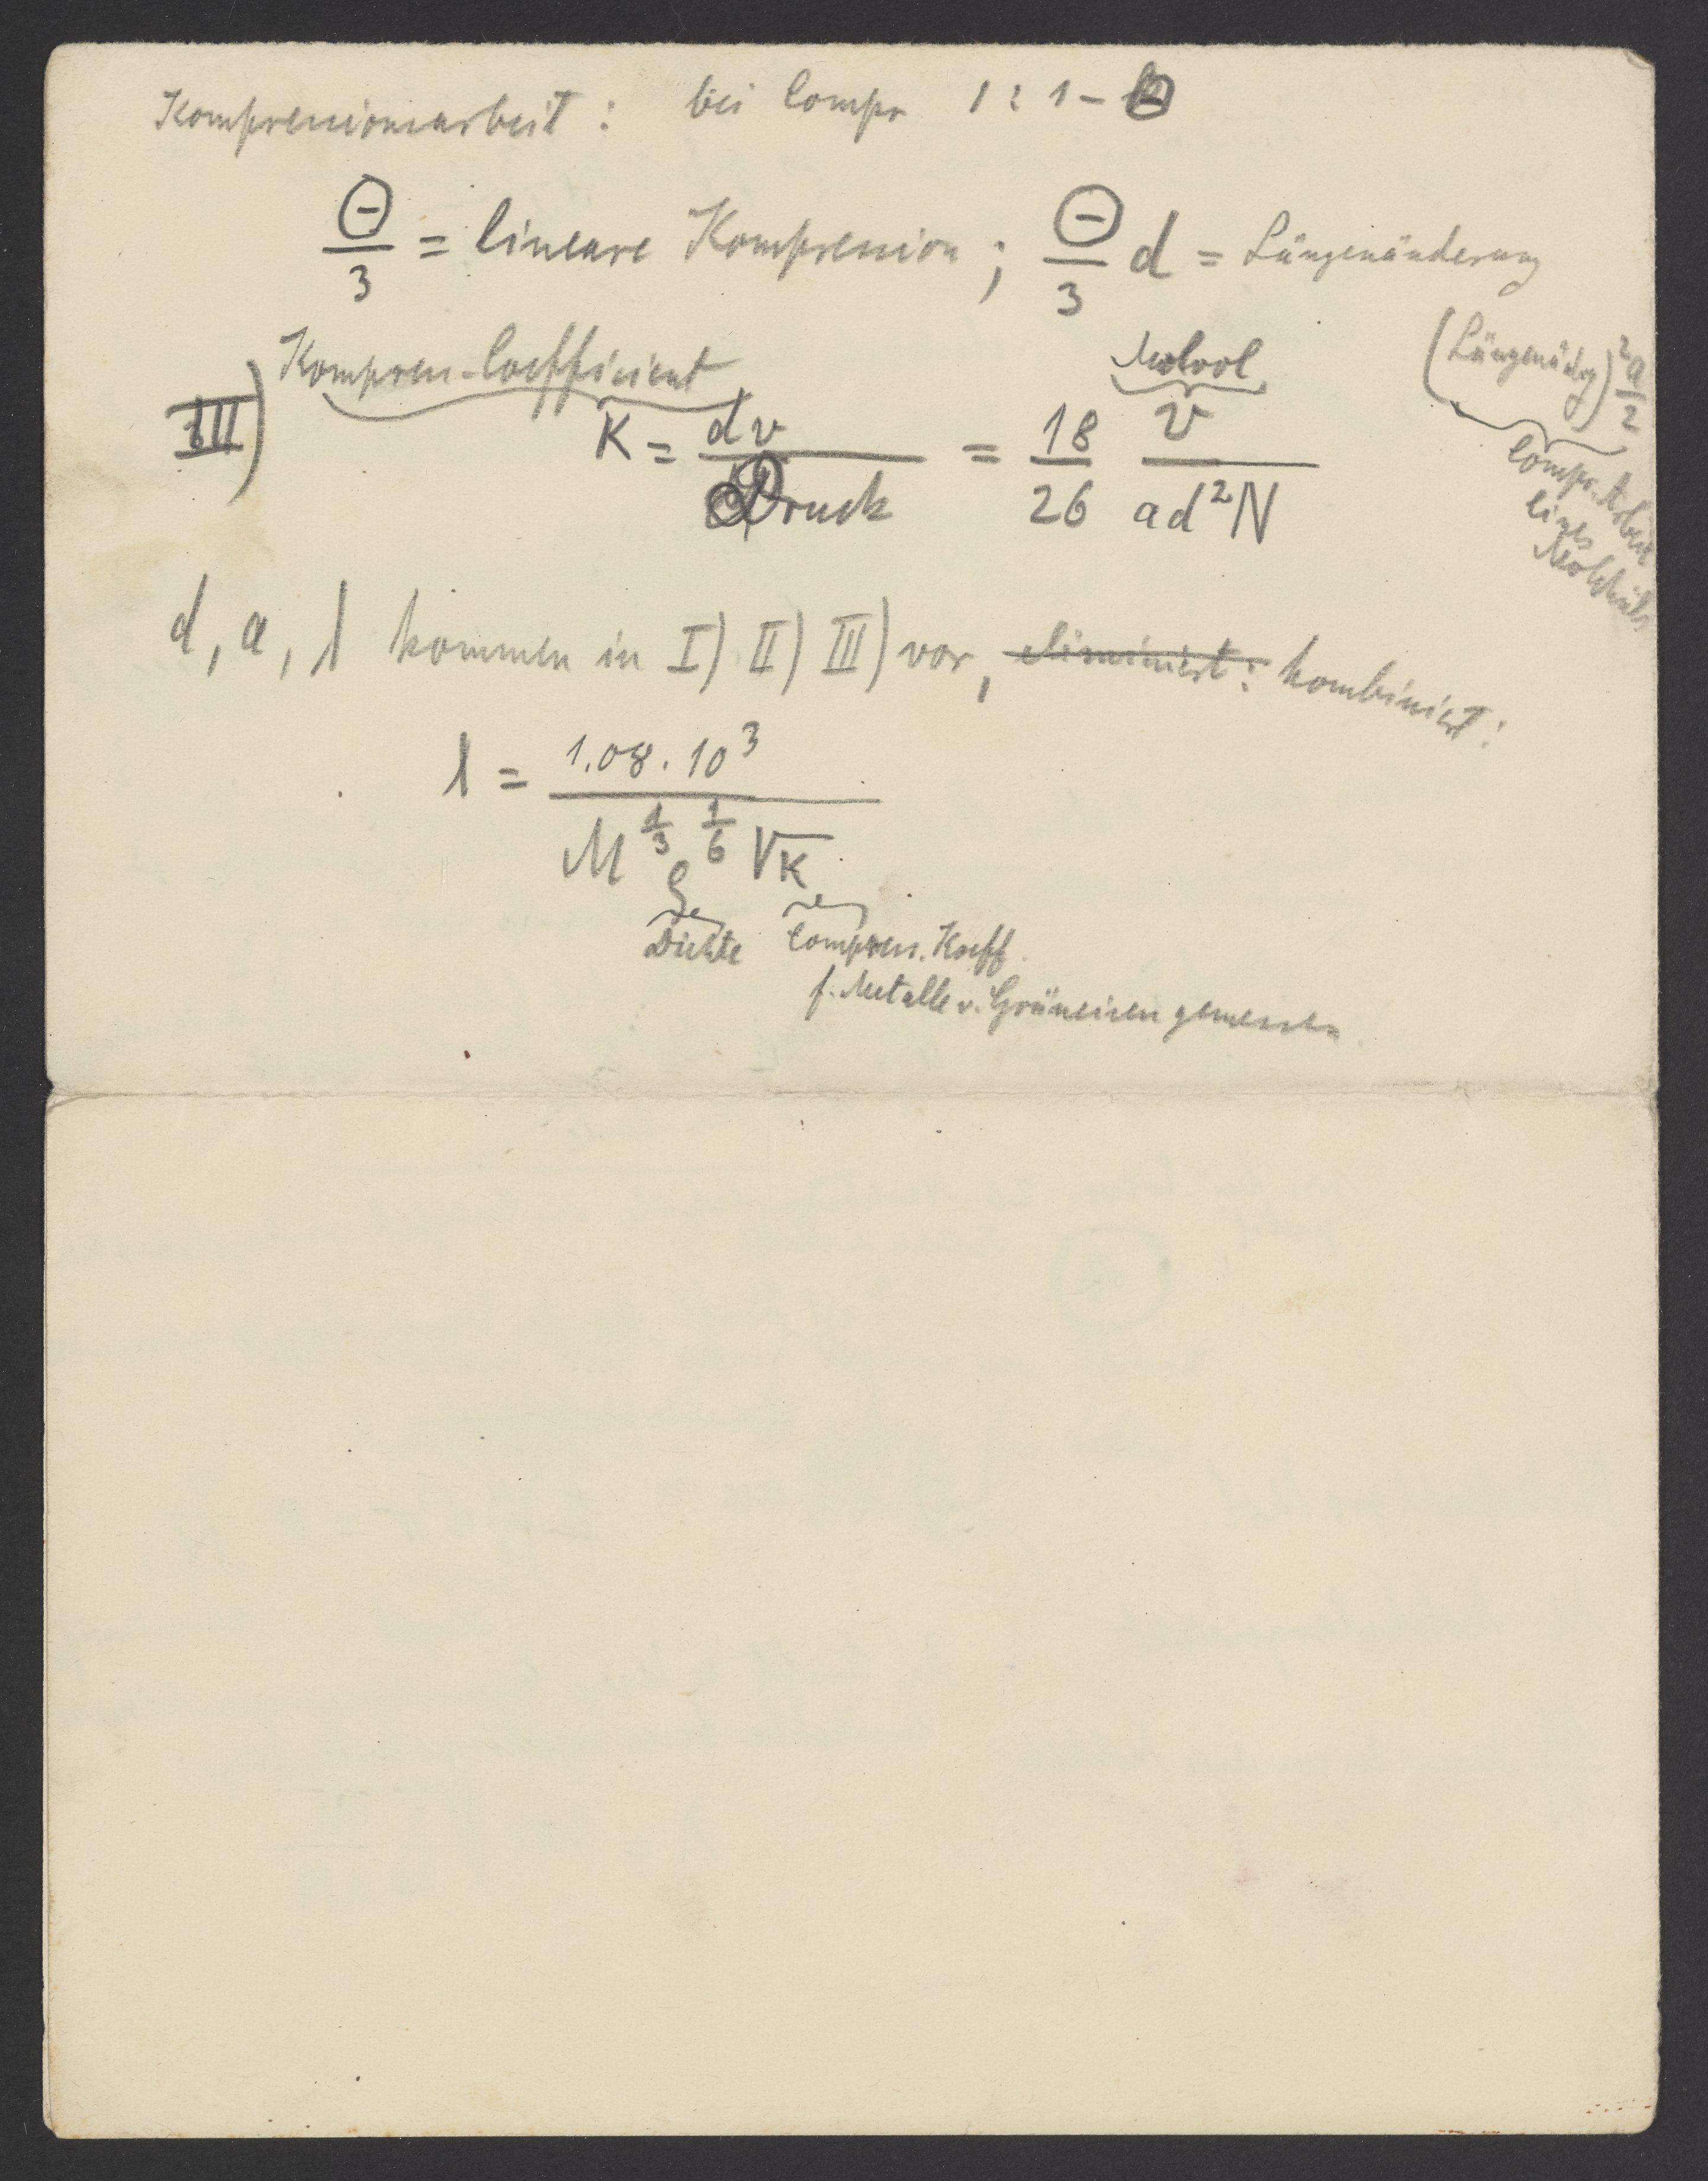 Kompressionsarbeit: bei Compr 1 : 1 - Θ
Θ/3 = lineare Kompression ; Θ/3 d = Längenänderung
Kompress-Coefficient
Molvol
(Längenädg)² a/2
III) K = dv/Druck = 18/26 v/ad²N
Compr. Arbeit
eines
Moleküls
d, a, λ kommen in I) II) III) vor, eliminiert: kombiniert:
λ = 1.08 · 10³ / M^1/3 ρ^1/6 √K
Dichte Compress. Koeff.
f. Metalle v. Grüneisen gemessen